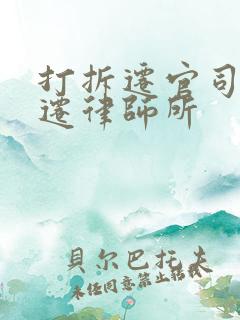 打拆遷官司
遷律師所
貝尔巴托夫
未经同意禁止转载